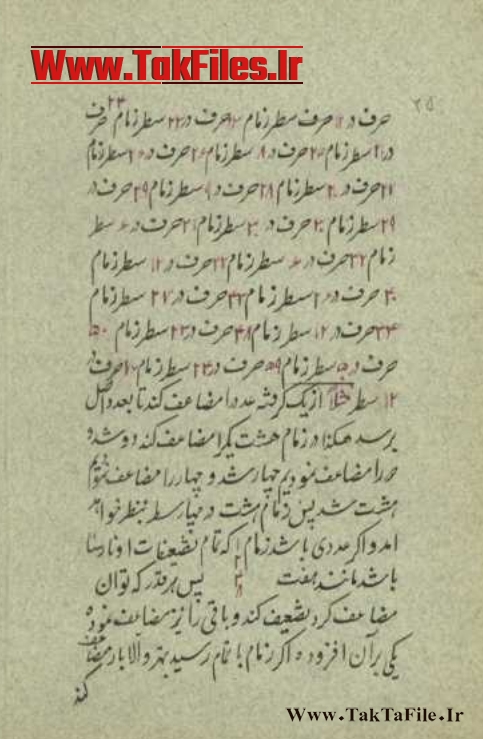 Www.TakFiles.Ir
۲۵
حرف در ۱۲ حرف سطر زمام حرف در ۲۲ سطر زمام ۲۴ حرف
در ۲۱ سطر زمام حرف در ۸ سطر زمام ۲۶ حرف در ۲۰ سطر زمام
۲۷ حرف در ۲۰ سطر زمام ۲۸ حرف در ۹ سطر زمام ۲۹ حرف در
۲۹ سطر زمام ۳۰ حرف در ۳۰ سطر زمام ۳۱ حرف در سطر
زمام ۳۲ حرف در سطر زمام حرف در ۱۲ سطر زمام
حرف در سطر زمام حرف در ۲۷ سطر زمام
حرف در ۱۲ سطر زمام ۴۸ حرف در ۲۳ سطر زمام ۵۰
حرف در سطر زمام ۵۹ حرف در ۲۳ سطر زمام حرف در
۱۲ سطر مثلا از یک گرفته عدد را مضاعف کند تا بعدد اصل
برسد هکذا در زمام هشت یکرا مضاعف کند دو شد و
دو را مضاعف نمودیم چهار شد و چهار را مضاعف نمودیم
هشت شد پس زمام هشت در چهار سطر بنظر خواهد
امد و اگر عددی باشد زمام که تمام تضعیفات او نارسا
باشد مانند هفت پس هر قدر که توان
مضاعف کرد تضعیف کند و باقی را نیز مضاعف نموده
یکی بر آن افزوده اگر زمام با تمام رسید بهتر و الا باز مضاعف
کند
Www.TakTaFile.Ir